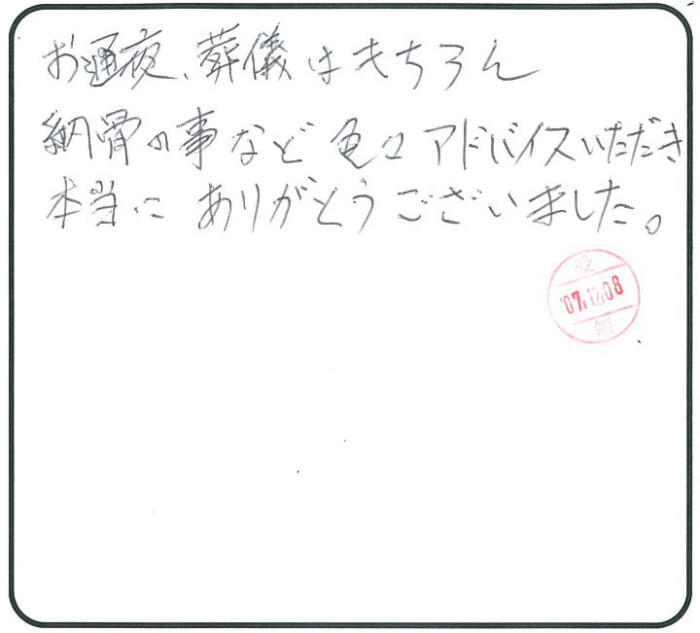 お通夜、葬儀はもちろん
納骨の事など色々アドバイスいただき
本当にありがとうございました。
受
'07.12.08
領